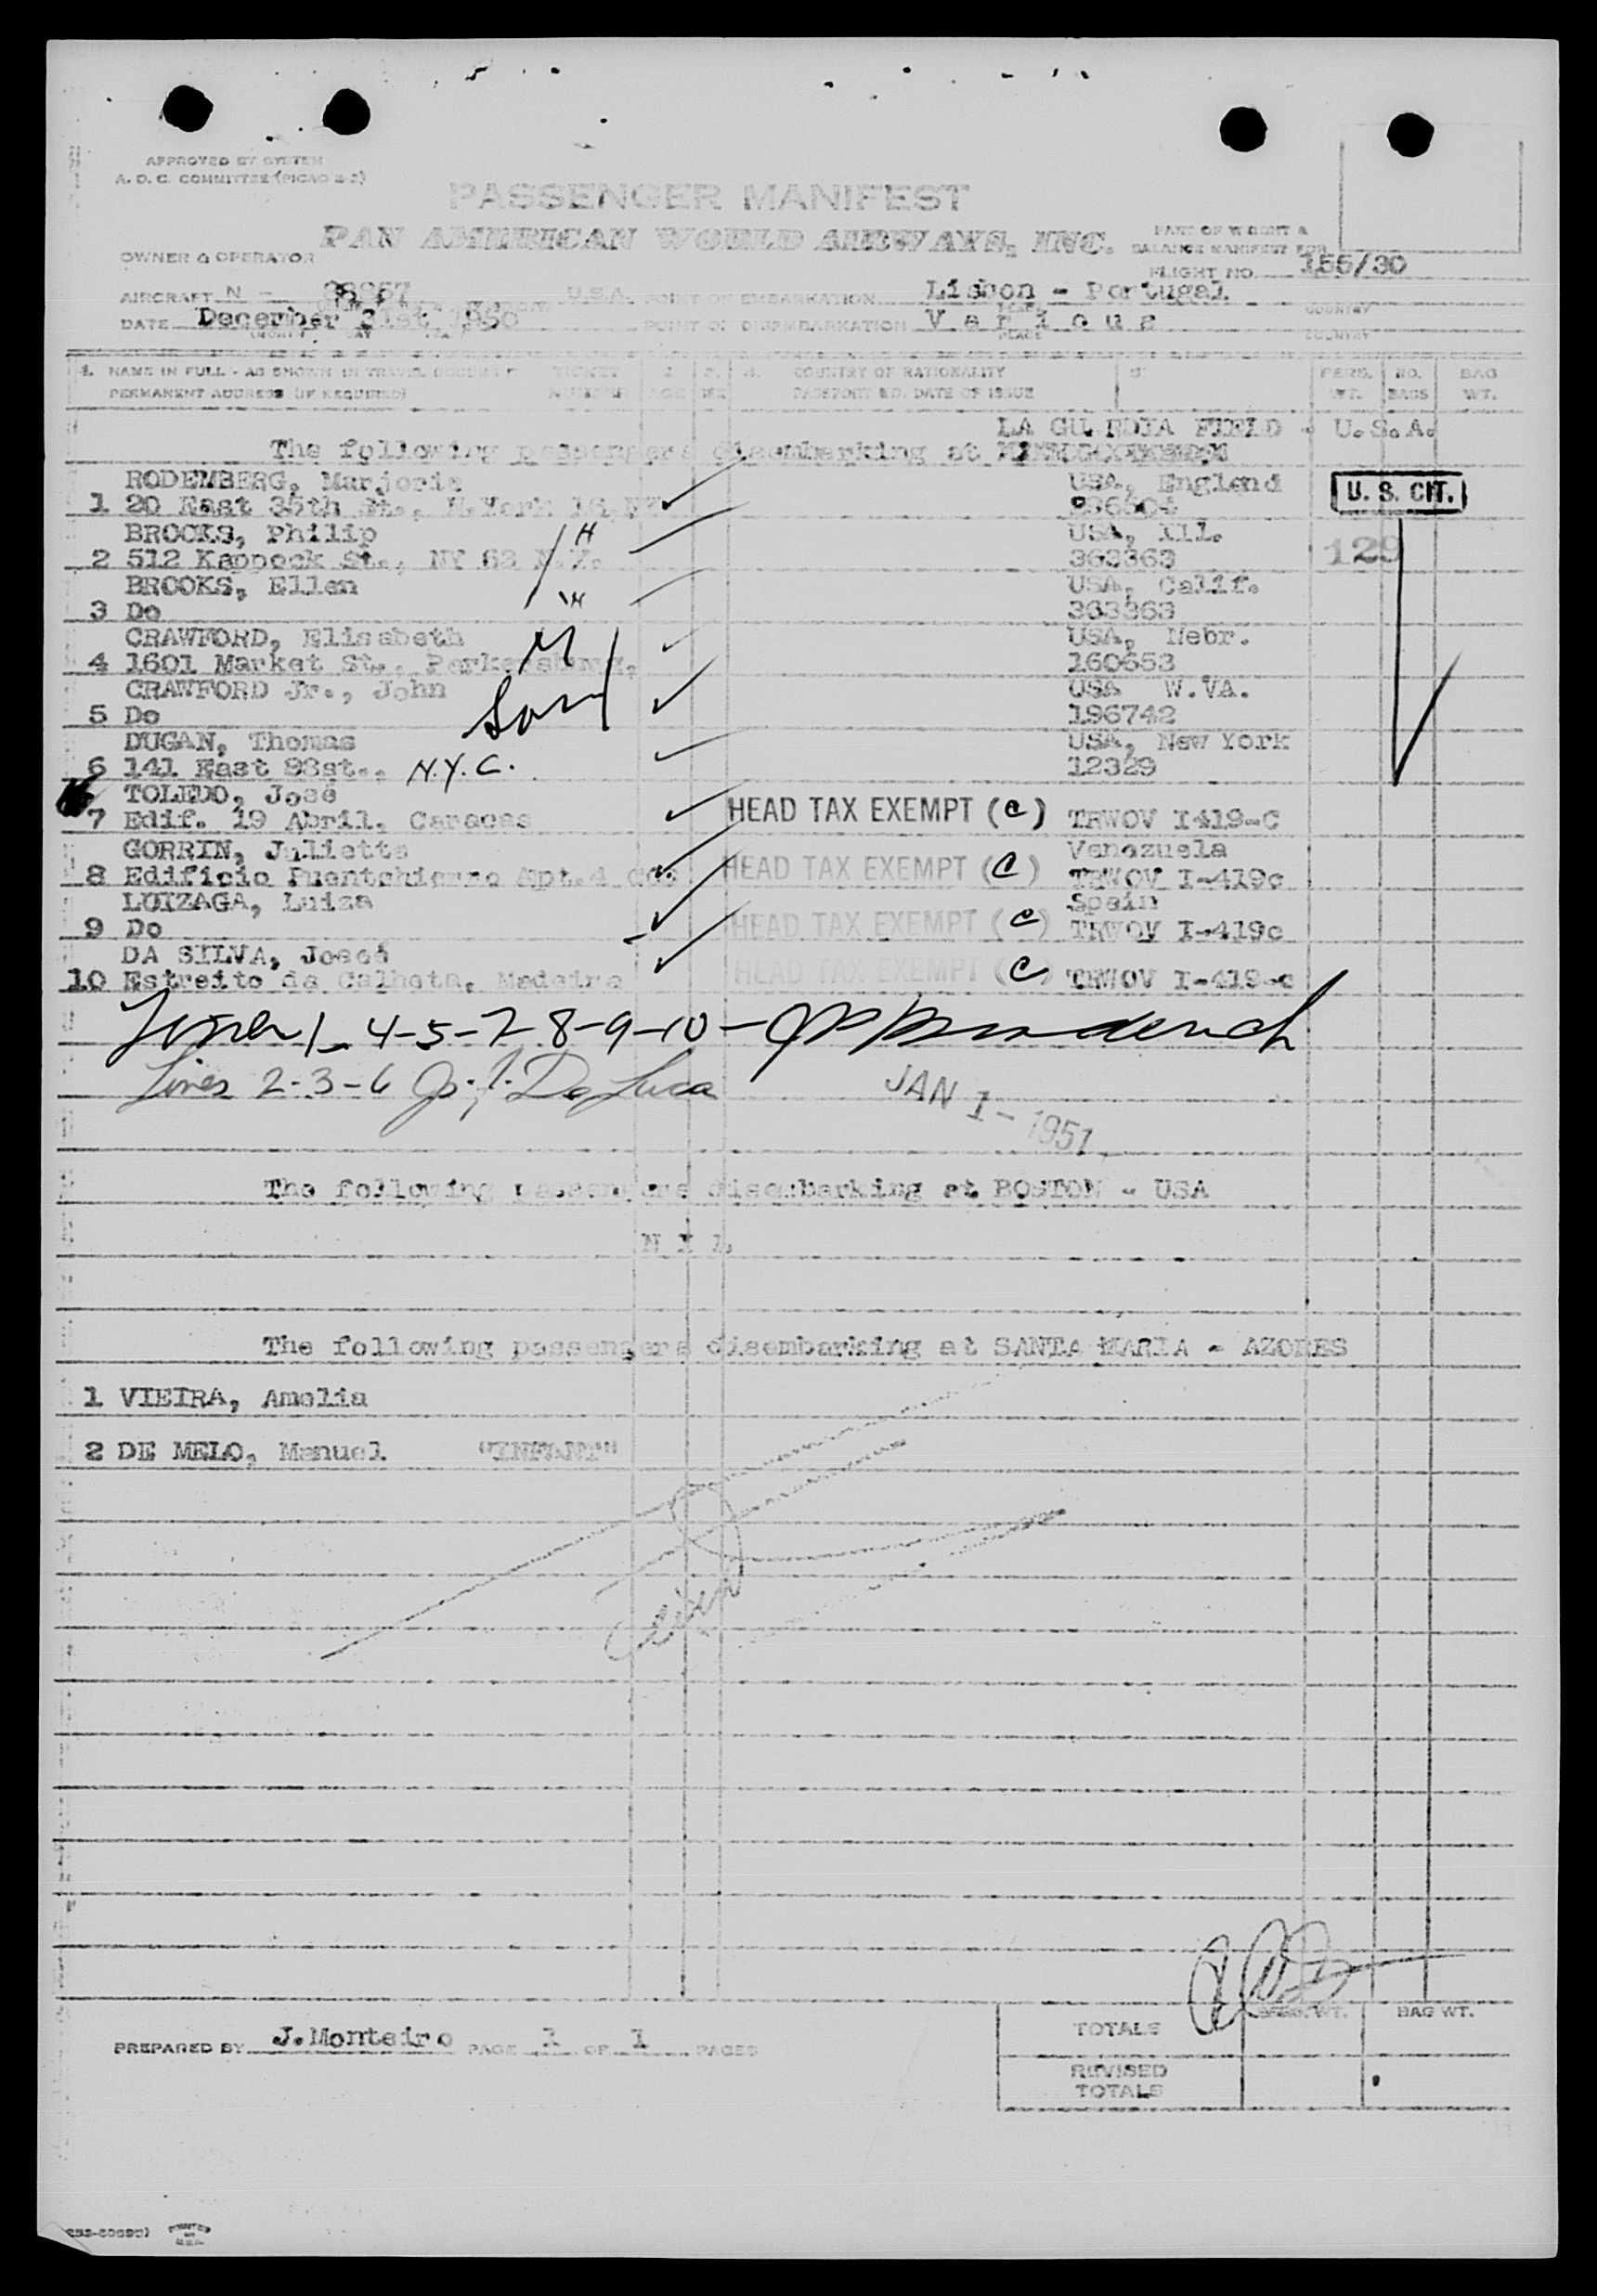 APPROVED BY SYSTEM
A. O. C. COMMITTEE (PICAO 2-2)
PASSENGER MANIFEST
PAN AMERICAN WORLD AIRWAYS, INC.
PART OF WEIGHT &
BALANCE MANIFEST FOR
OWNER & OPERATOR
FLIGHT NO. 155/30
AIRCRAFT N - U.S.A. POINT OF EMBARKATION Lisbon - Portugal
PLACE COUNTRY
DATE December 31st, 1950 POINT OF DISEMBARKATION Various
PLACE COUNTRY
NAME IN FULL - AS SHOWN IN TRAVEL DOCUMENT TICKET COUNTRY OF NATIONALITY PERS. NO. BAG
PERMANENT ADDRESS (IF REQUIRED) NUMBER AGE SEX PASSPORT NO. DATE OF ISSUE WT. BAGS WT.
LA GUARDIA FIELD - U.S.A.
The following passengers disembarking at
RODEMBERG, Marjorie USA, England U. S. CIT.
1 20 East 35th St., N.York 16 NY
BROOKS, Philip H USA, Ill. 129
2 512 Kappock St., NY 63 N.Y. 363363
BROOKS, Ellen USA, Calif.
3 Do W 363363
CRAWFORD, Elisabeth M USA, Nebr.
4 1601 Market St., Parkersburg, 160653
CRAWFORD Jr., John Son USA W.VA.
5 Do 196742
DUGAN, Thomas USA, New York
6 141 East 93st., N.Y.C. 12329
TOLEDO, José
7 Edif. 19 Abril, Caracas HEAD TAX EXEMPT (C) TRWOV I419-C
GORRIN, Julietta Venezuela
8 Edificio Puentehierro Apt.4 HEAD TAX EXEMPT (C) TRWOV I-419c
LOIZAGA, Luiza Spain
9 Do HEAD TAX EXEMPT (C) TRWOV I-419c
DA SILVA, José
10 Estreito da Calheta, Madeira HEAD TAX EXEMPT (C) TRWOV I-419-c
Lines 1-4-5-7-8-9-10-
Lines 2-3-6 De Luca
JAN 1 - 1951
The following passengers disembarking at BOSTON - USA
N I L
The following passengers disembarking at SANTA MARIA - AZORES
1 VIEIRA, Amelia
2 DE MELO, Manuel "INFANT"
TOTALS PERS. WT. BAG WT.
PREPARED BY J.Monteiro PAGE 1 OF 1 PAGES
REVISED
TOTALS
PRINTED
IN
U.S.A.